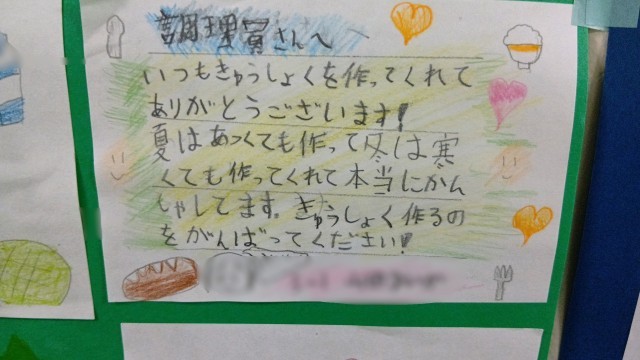 調理員さんへ
いつもきゅうしょくを作ってくれて
ありがとうございます!
夏はあつくても作って冬は寒
くても作ってくれて本当にかん
しゃしてます。きゅうしょく作るの
をがんばってください!